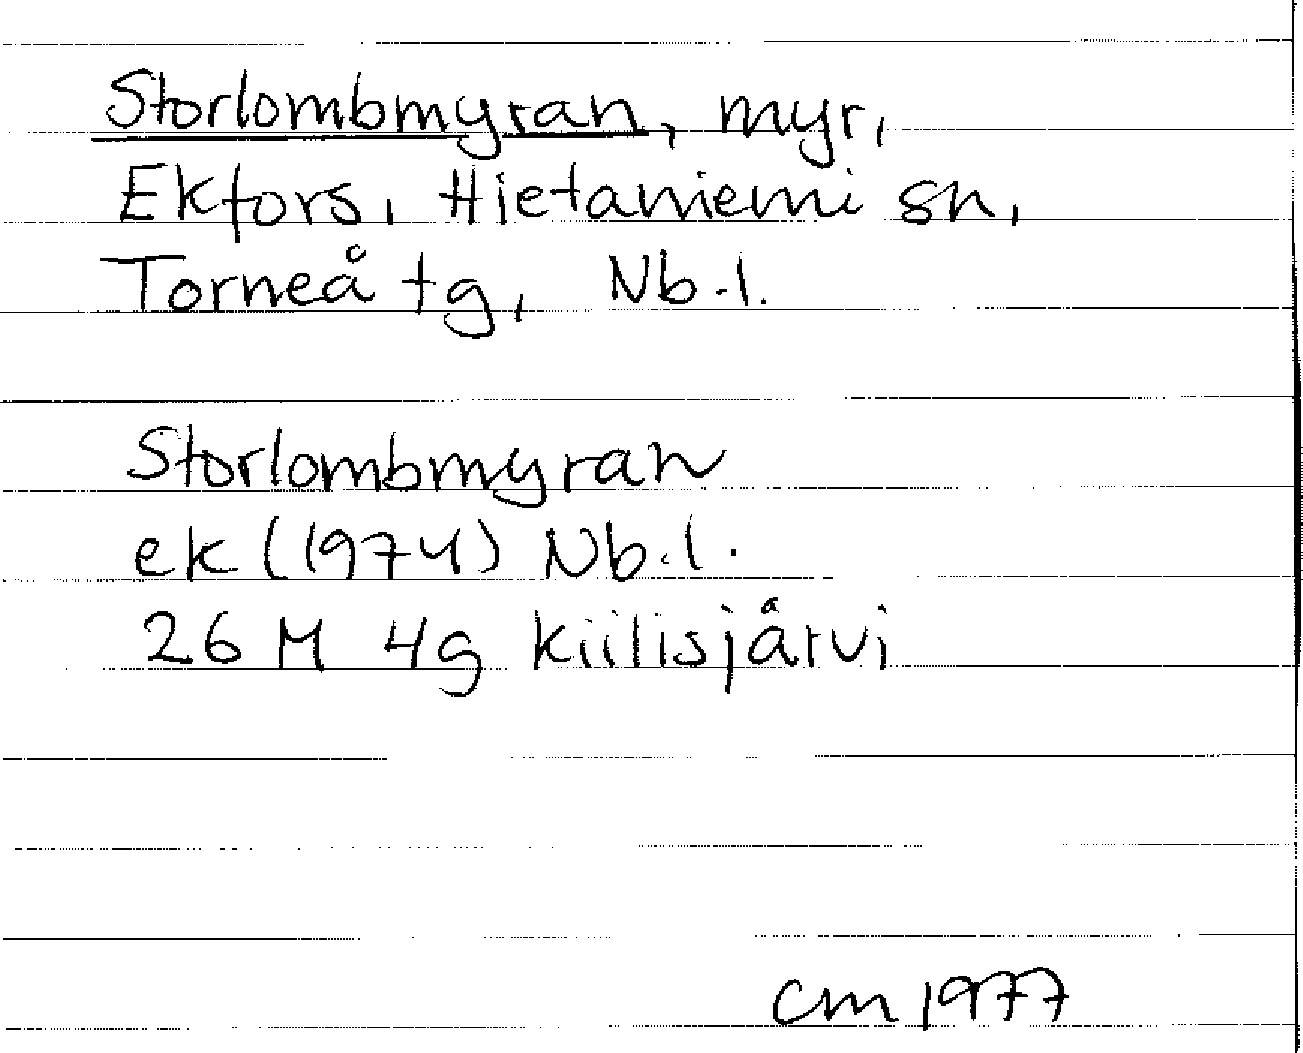 Storlombmyran, myr,
Ekfors, Hietaniemi sn,
Torneå tg, Nb.l.
Storlombmyran
ek (1974) Nb.l.
26 M 4g Kiilisjårvi
CM 1977